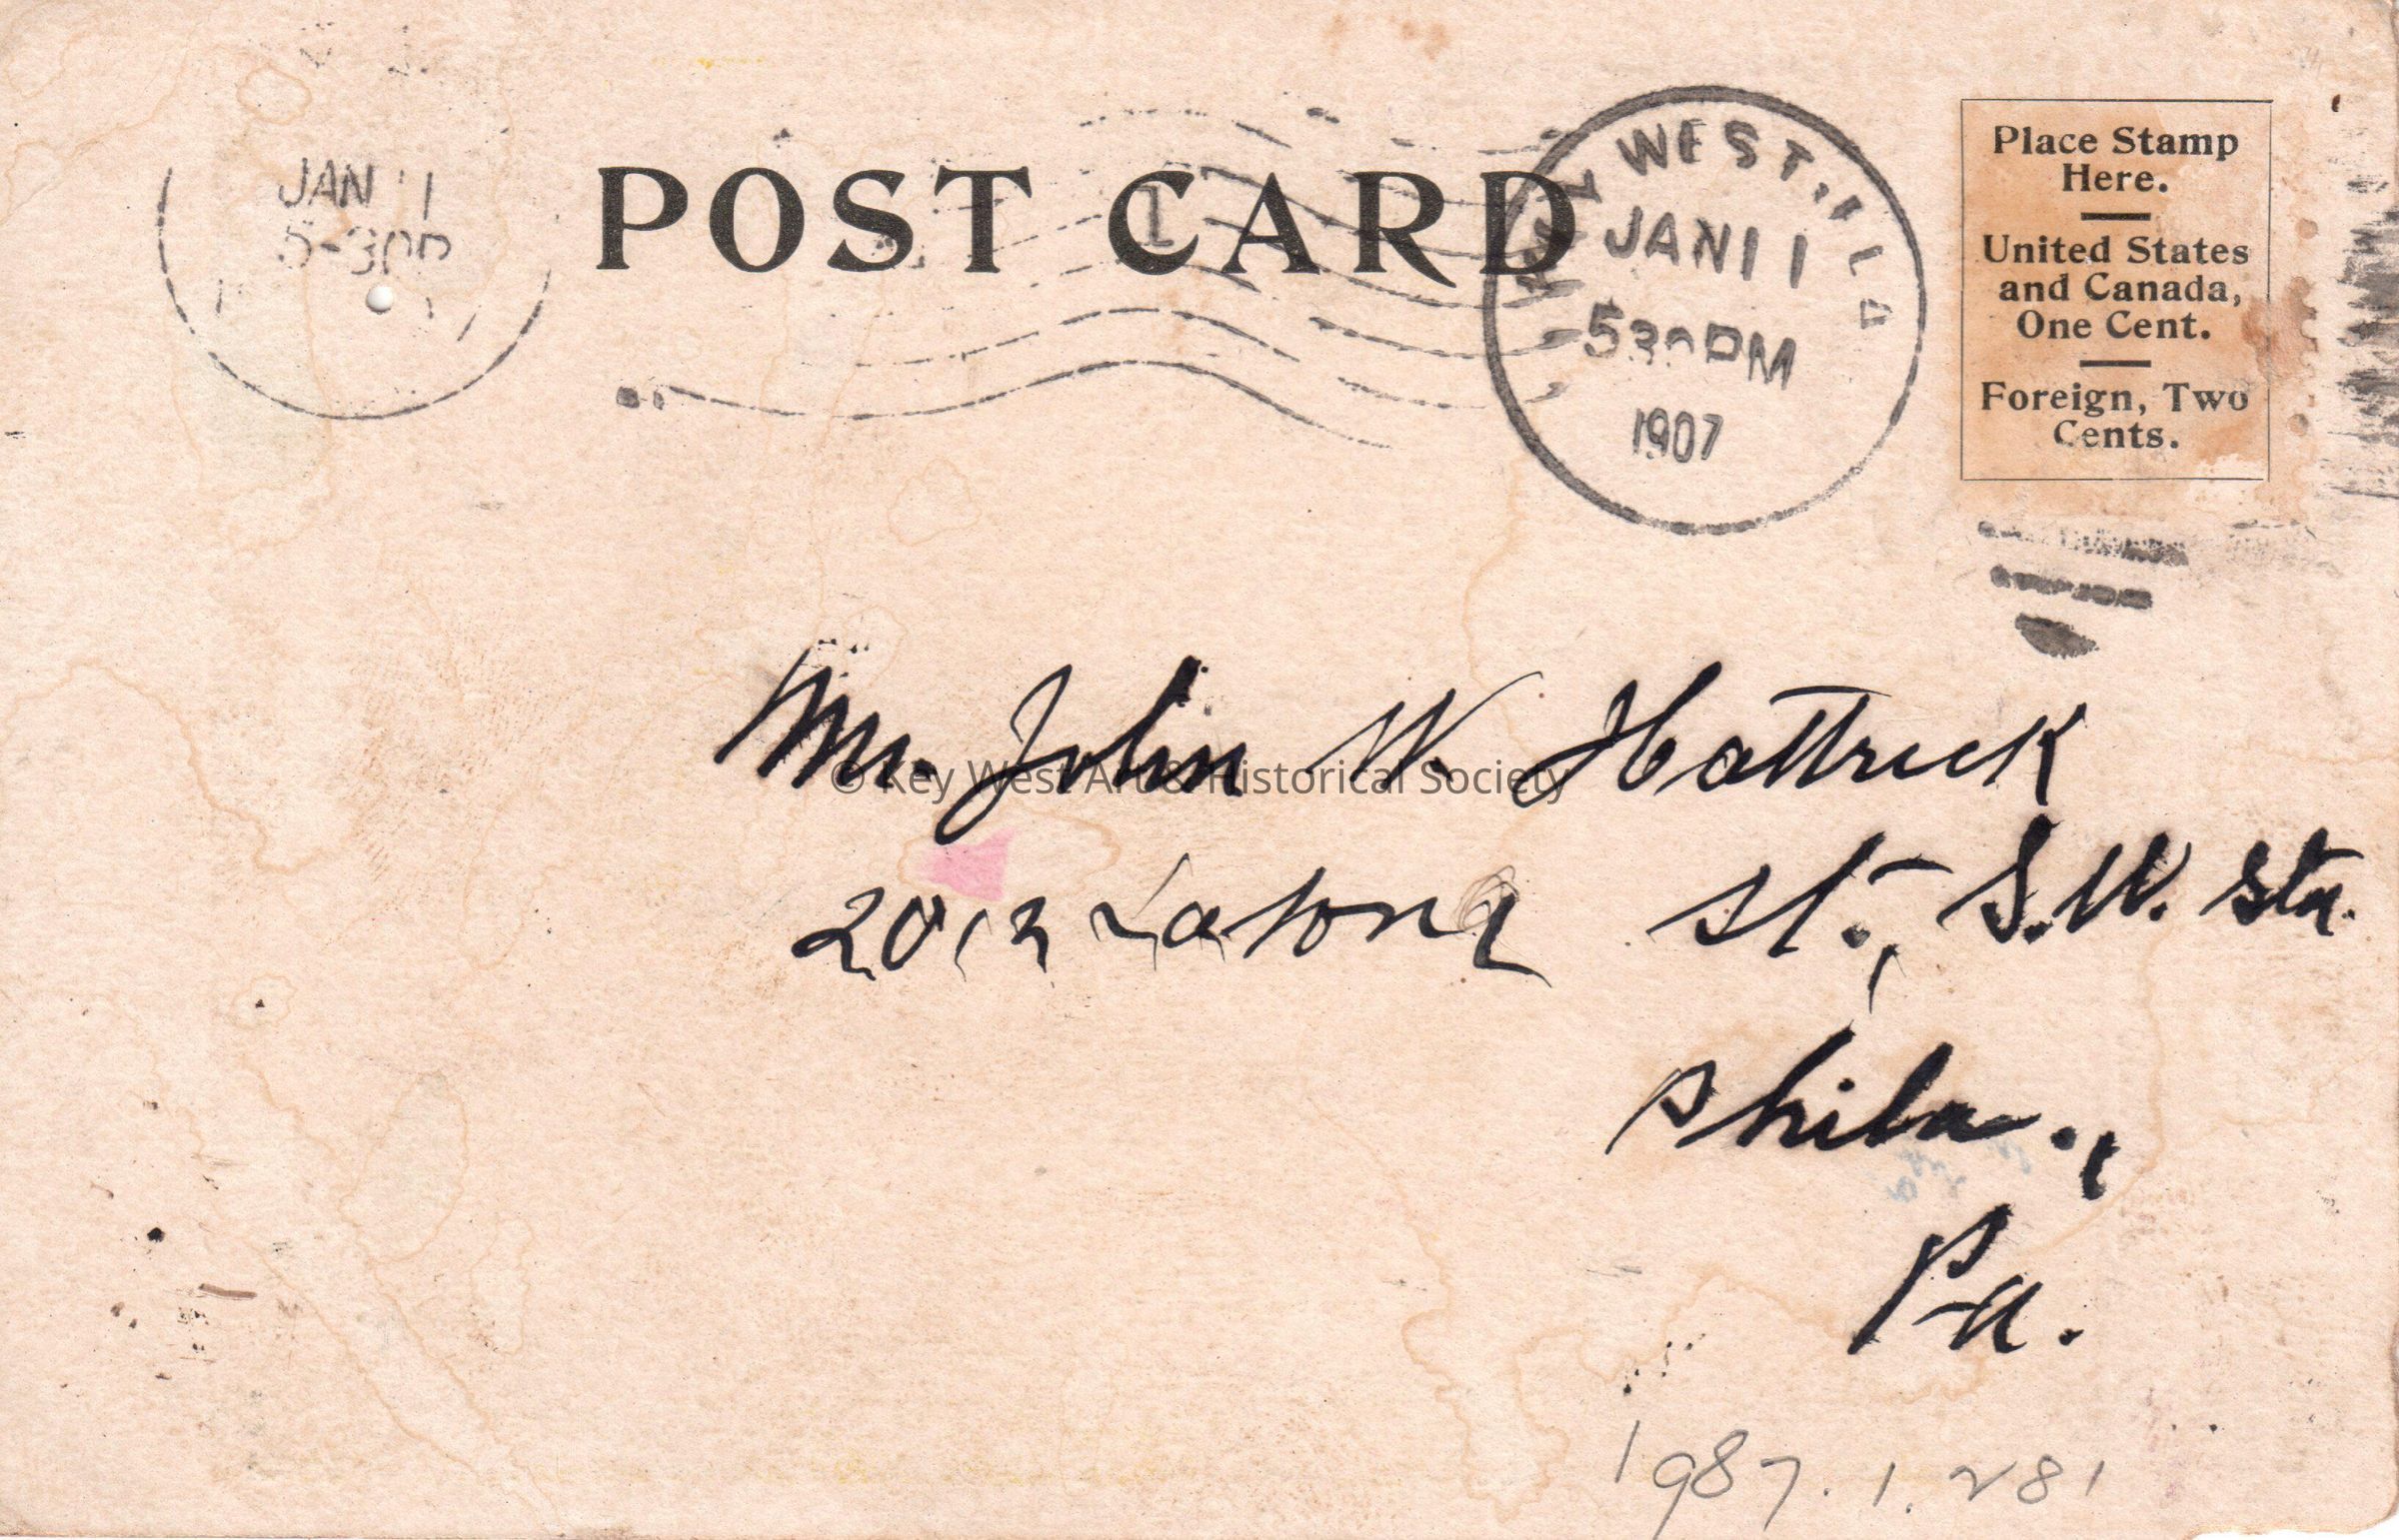 JAN 11
POST CARD
KEY WEST, FLA
JAN 11
530 PM
1907
Place Stamp
Here.
United States
and Canada,
One Cent.
Foreign, Two
Cents.
Mr. John W. Hattrick
© Key West Art & Historical Society
2013 Latona St., S.W. Sta.
Phila.,
Pa.
1987.1.281